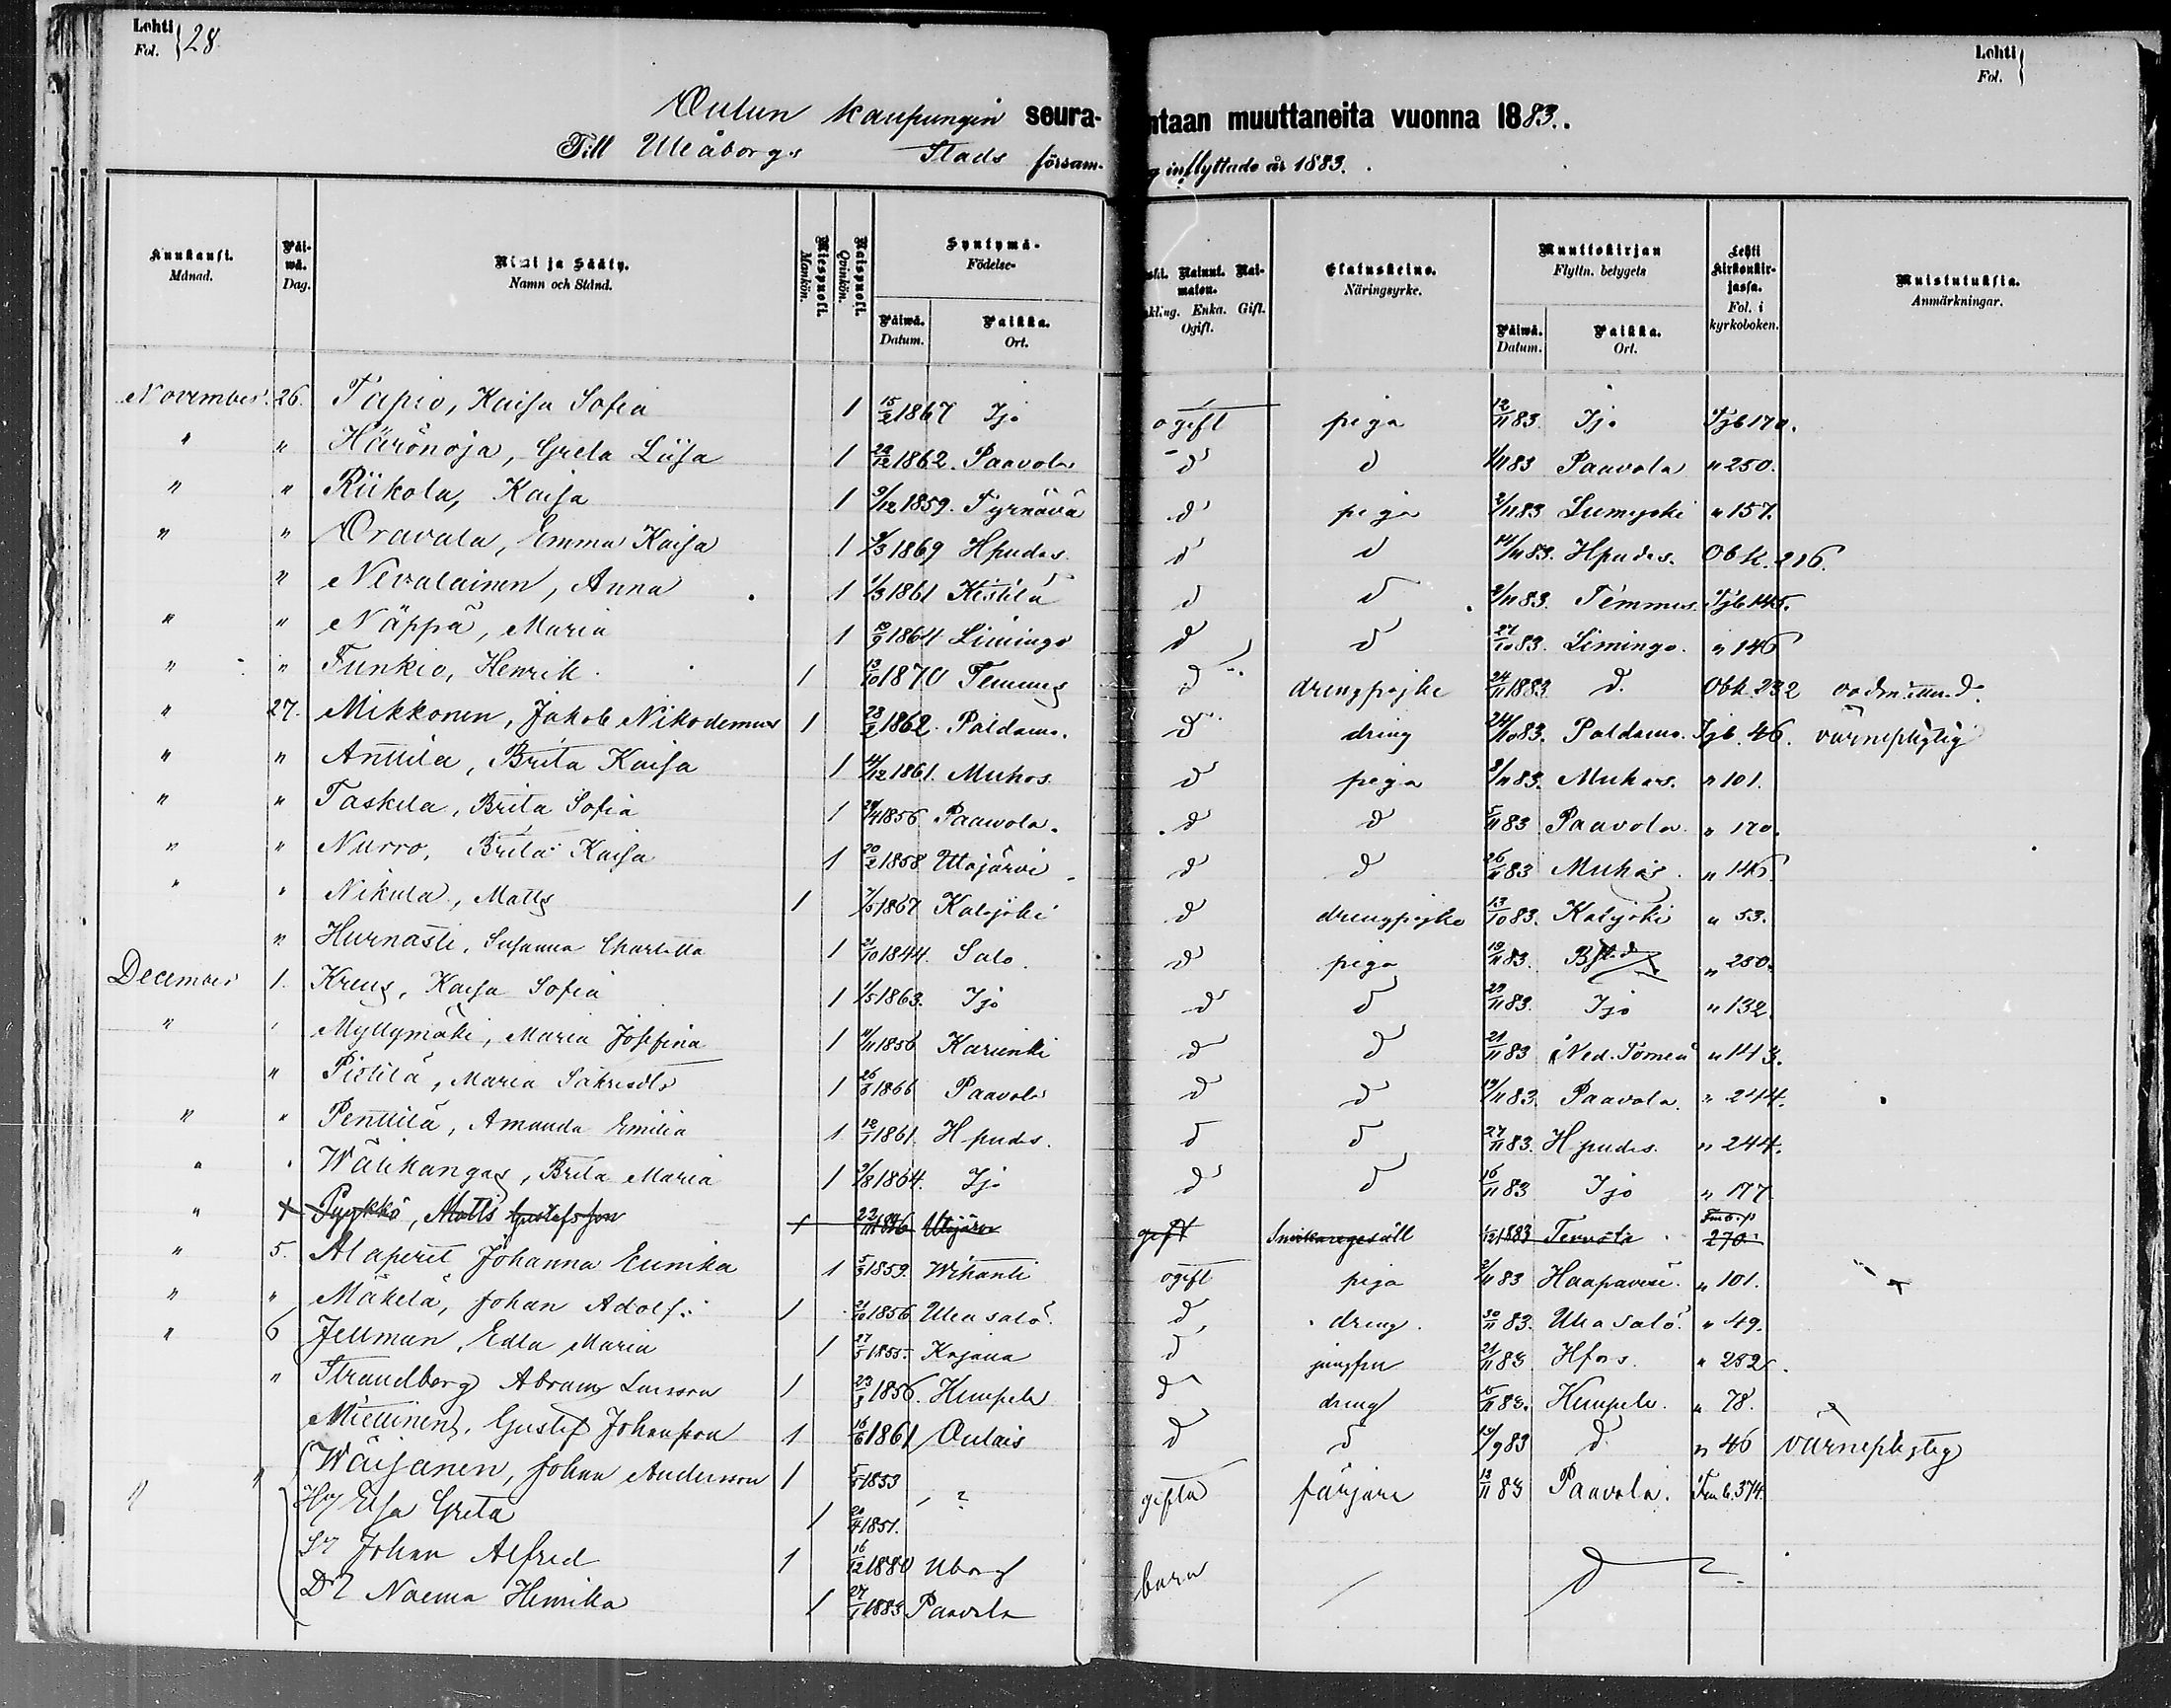 Lohti
Fol. } 28.
Lohti
Fol. }
Oulun kaupungin seura- ntaan muuttaneita vuonna 1883.
Till Uleåborgs Stads försam- g inflyttade år 1883.
Kuukausi. Månad.
Päi-wä. Dag.
Nimi ja Sääty. Namn och Stånd.
Miespuoli. Mankön.
Naispuoli. Qvinkön.
Syntymä- Födelse-
Päiwä. Datum.
Paikka. Ort.
Nainut. Nai-maton. Enka. Gift. Ogift.
Elatuskeino. Näringsyrke.
Muuttokirjan Flyttn. betygets
Päiwä. Datum.
Paikka. Ort.
Lehti kirkonkir-jassa. Fol. i kyrkoboken.
Muistutuksia. Anmärkningar.
November. 26. Tapio, Kaisa Sofia 1 15/2 1867 Ijo ogift piga 12/11 83. Ijo Tjb 170.
" " Härönoja, Greta Liisa 1 1862. Paavola d d 1/11 83 Paavola " 250.
" " Riikola, Kaisa 1 9/12 1859. Tyrnävä d piga 2/11 83 Lumijoki " 157.
" " Oravala, Emma Kaisa 1 1869 Hpudas d d 14/11 83. Hpudas. Obk. 216.
" Nevalainen, Anna 1 1/3 1861 Kestilä d d 2/11 83. Temmes. Tjb 145.
" " Näppä, Maria 1 1864 Limingo d d 27/10 83. Limingo. " 146
" " Funkio, Henrik 1 13/10 1870 Temmes d drengpojke 24/11 1883. d. Obk. 232
" 27. Mikkonen, Jakob Nikodemus 1 28/2 1862. Paldamo. d dreng 24/10 83. Paldamo. Tjb. 46. värnepligtig
" " Anttila, Brita Kaisa 1 1861. Muhos d piga 2/11 83. Muhos. " 101.
" " Taskila, Brita Sofia 1 1856 Paavola. d d 5/11 83 Paavola " 170.
" " Nurro, Brita Kaisa 1 20/2 1858 Utajärvi d d 26/11 83 Muhos " 146.
" " Nikula, Matts 1 1867 Kalajoki d drengpojke 13/10 83. Kalajoki " 53.
" Hurnasti, Susanna Charlotta 1 21/10 1844. Salo d piga 83. " 250.
December 1. Kreus, Kaisa Sofia 1 1/5 1863. Ijo d d 29/11 83. Ijo " 132.
" " Myllymäki, Maria Josefina 1 1856 Karunki d d 21/11 83 Ned. Torneå " 143.
" Pistilä, Maria 1 1866 Paavola d d 19/11 83. Paavola " 244.
" " Penttilä, Amanda Emilia 1 1861. Hpudas. d d 27/11 83. Hpudas. " 244.
" " Wälikangas, Brita Maria 1 1864. Ijo d d 16/11 83 Ijo " 177
" Pyykkö, Matts Gustafsson 1 Utajärvi gift Snickaregesäll 1/12 1883 Tervola 270.
" 5. Alaperet Johanna Eunika 1 5/3 1859. Wihanti ogift piga 2/11 83 Haapavesi. " 101.
" " Mäkelä, Johan Adolf 1 21/10 1856 Uleåsalo. d dreng. 30/11 83. Uleåsalo. " 49.
" 6 Jellman, Edla Maria 1 27/5 1855. Kajana d jungfru 21/11 83 Hfors. " 252.
" Strandberg Abram Larsson 1 23/3 1856. Kempele d dreng 15/11 83. Kempele. " 78.
Miettinen, Gustaf Johansson 1 16/6 1861 Oulais d d 83 d " 46 värnepligtig
" Wäisänen, Johan Andersson 1 1853 ? gifta färjare 12/11 83 Paavola. Fmb. 374.
" Hu Elsa Greta 1 20/4 1851.
Sn Johan Alfred 1 16/12 1880 Uborg barn d
Dr Naema Henrika 1 27/1 1883 Paavola